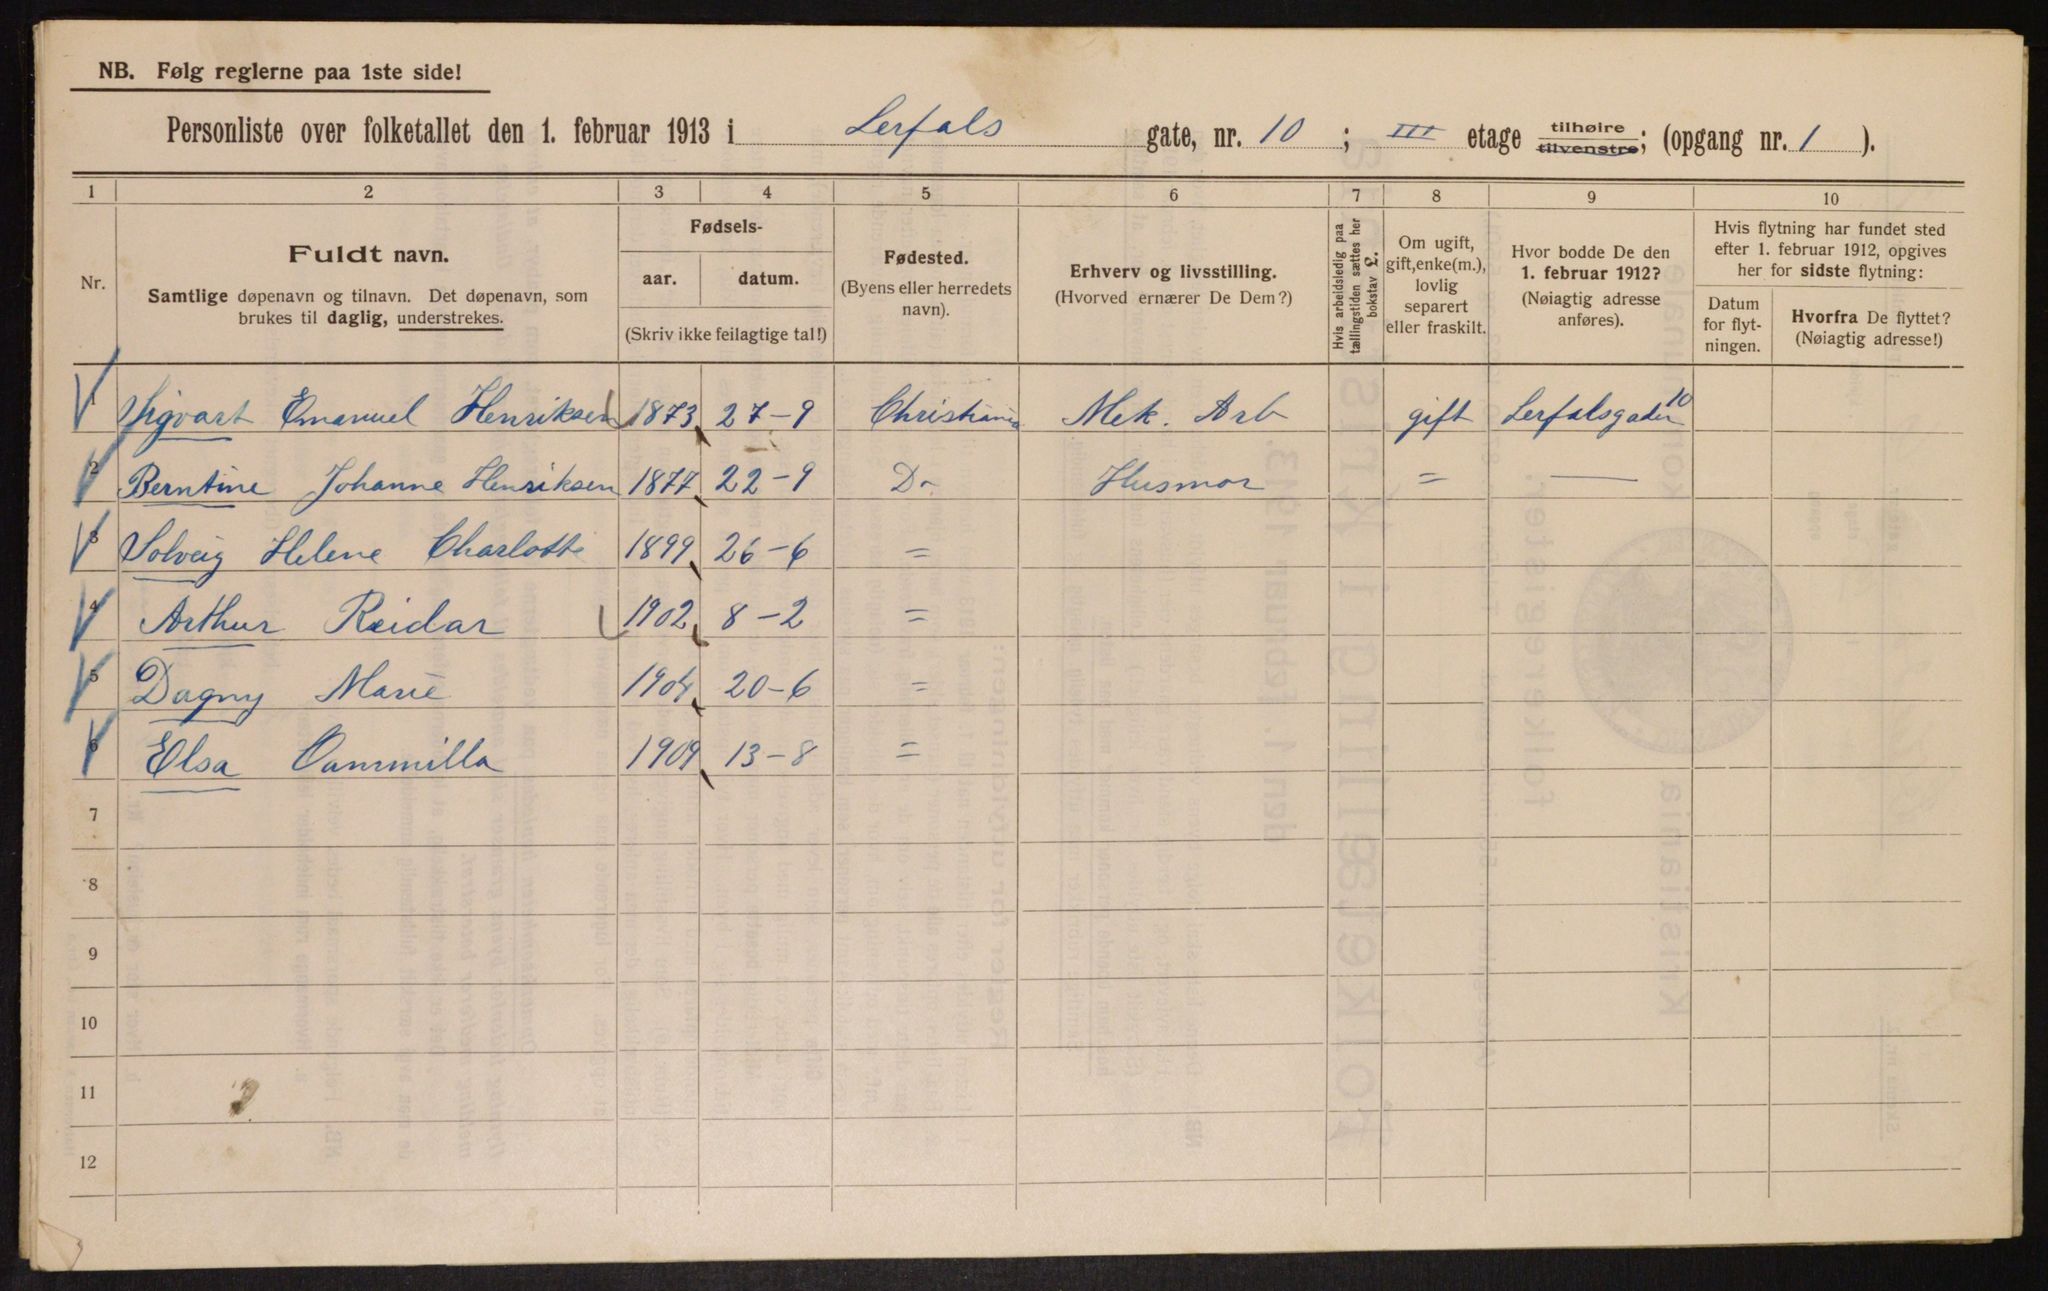 NB. Følg reglerne paa 1ste side!
Personliste over folketallet den 1. februar 1913 i Lerfals gate, nr. 10 ; III etage tilhøire tilvenstre; (opgang nr. 1 ).
1 2 3 4 5 6 7 8 9 10
Nr.
Fuldt navn.
Samtlige døpenavn og tilnavn. Det døpenavn, som
brukes til daglig, understrekes.
Fødsels-
aar. datum.
(Skriv ikke feilagtige tal!)
Fødested.
(Byens eller herredets
navn).
Erhverv og livsstilling.
(Hvorved ernærer De Dem?)
Hvis arbeidsledig paa
tællingstiden sættes her
bokstav L.
Om ugift,
gift, enke(m.),
lovlig
separert
eller fraskilt.
Hvor bodde De den
1. februar 1912?
(Nøiagtig adresse
anføres).
Hvis flytning har fundet sted
efter 1. februar 1912, opgives
her for sidste flytning:
Datum
for flyt-
ningen.
Hvorfra De flyttet?
(Nøiagtig adresse!)
1 Sigvart Emanuel Henriksen 1873 27-9 Christiania Mek. Arb gift Lerfalsgaden 10
2 Berntine Johanne Henriksen 1877 22-9 Do Husmor = —
3 Solveig Helene Charlotte 1899 26-6 =
4 Arthur Reidar 1902 8-2 =
5 Dagny Marie 1904 20-6 =
6 Elsa Cammilla 1909 13-8 =
7
8
9
10
11
12